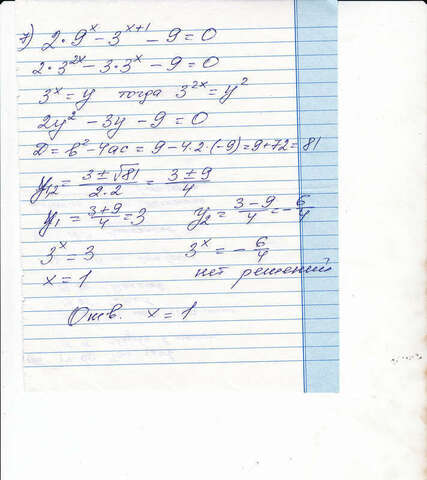 7) 2·9^x − 3^(x+1) − 9 = 0
2·3^(2x) − 3·3^x − 9 = 0
3^x = y тогда 3^(2x) = y²
2y² − 3y − 9 = 0
D = b² − 4ac = 9 − 4·2·(−9) = 9 + 72 = 81
y₁,₂ = (3 ± √81)/(2·2) = (3 ± 9)/4
y₁ = (3+9)/4 = 3 y₂ = (3−9)/4 = −6/4
3^x = 3 3^x = −6/4
x = 1 нет решений
Отв. x = 1